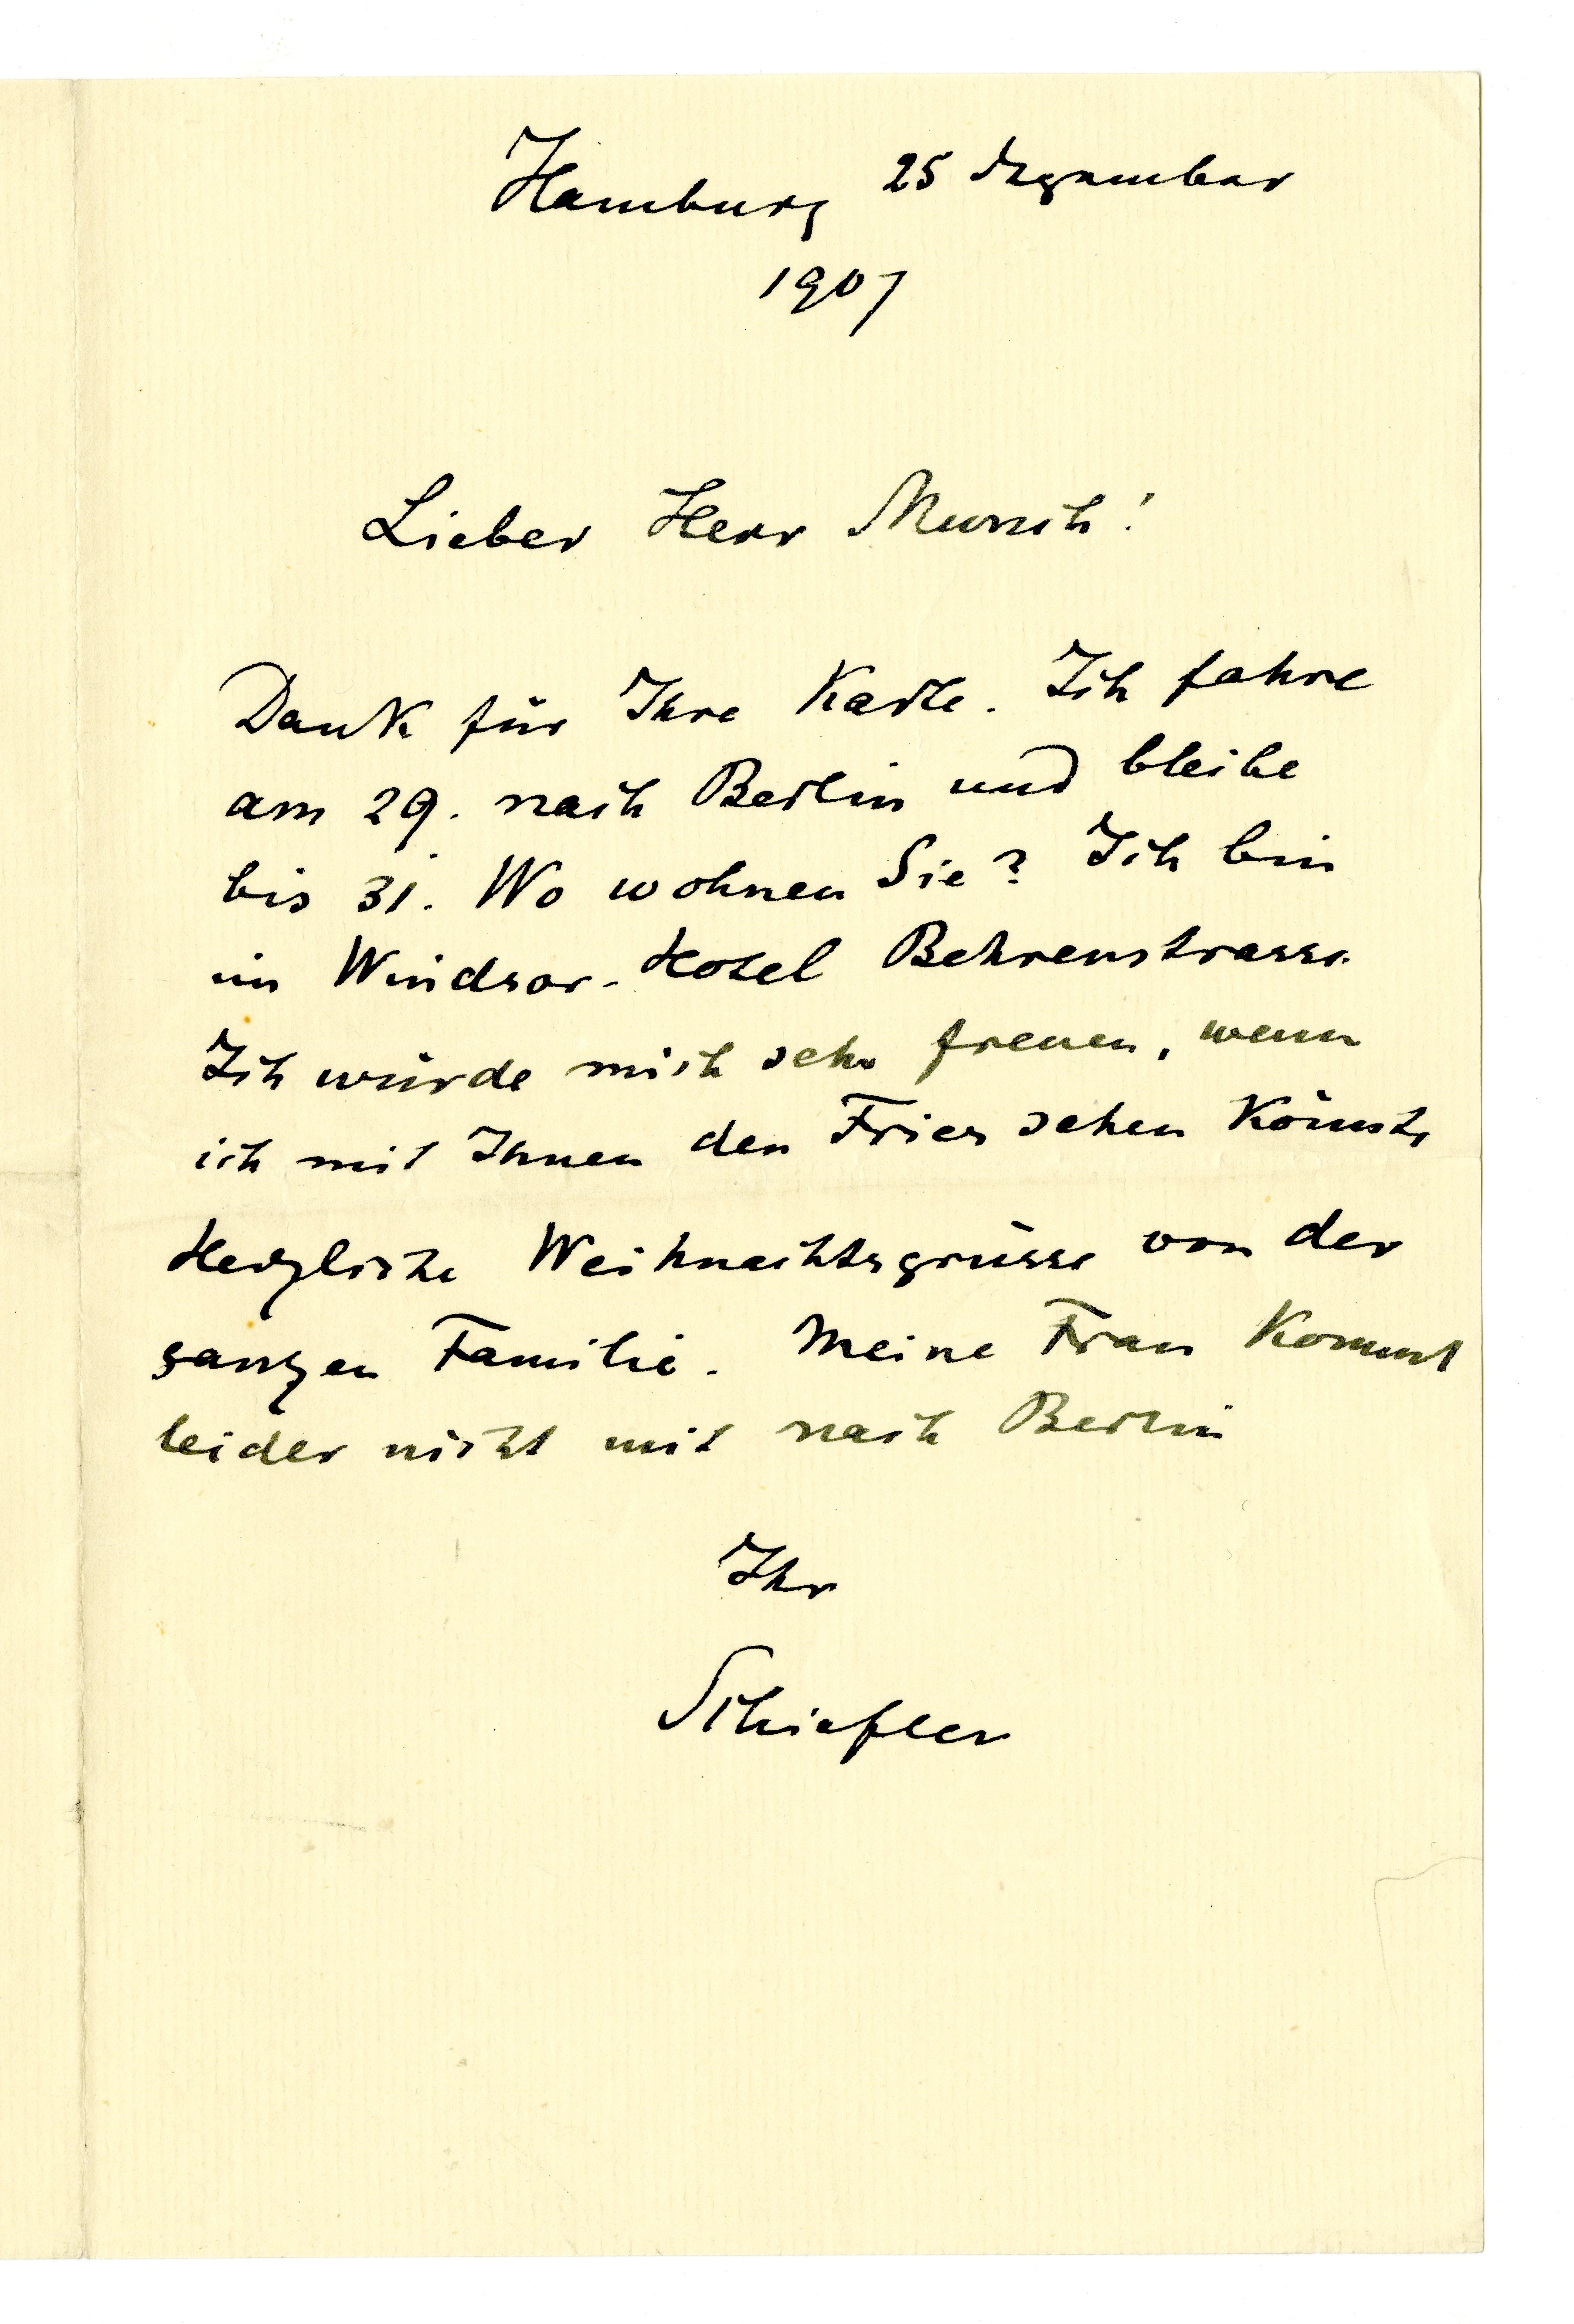 Hamburg 25 Dezember
1907
Lieber Herr Munch!
Dank für Ihre Karte. Ich fahre
am 29. nach Berlin und bleibe
bis 31. Wo wohnen Sie? Ich bin
im Windsor-Hotel Behrenstrasse.
Ich würde mich sehr freuen, wenn
ich mit Ihnen den Fries sehen könnte
Herzliche Weihnachtsgrüsse von der
ganzen Familie. Meine Frau kommt
leider nicht mit nach Berlin
Ihr
Schiefler